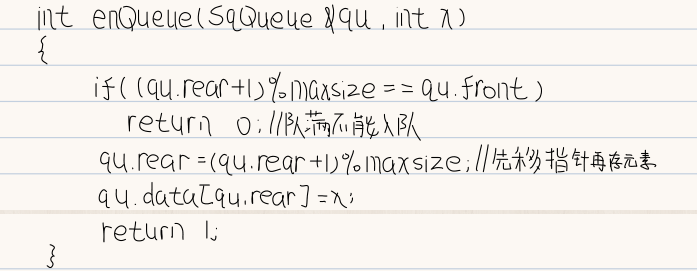 int enQueue(SqQueue &qu, int x)
{
if((qu.rear+1)%maxsize==qu.front)
return 0;//队满不能入队
qu.rear=(qu.rear+1)%maxsize;//先移指针再存元素
qu.data[qu.rear]=x;
return 1;
}